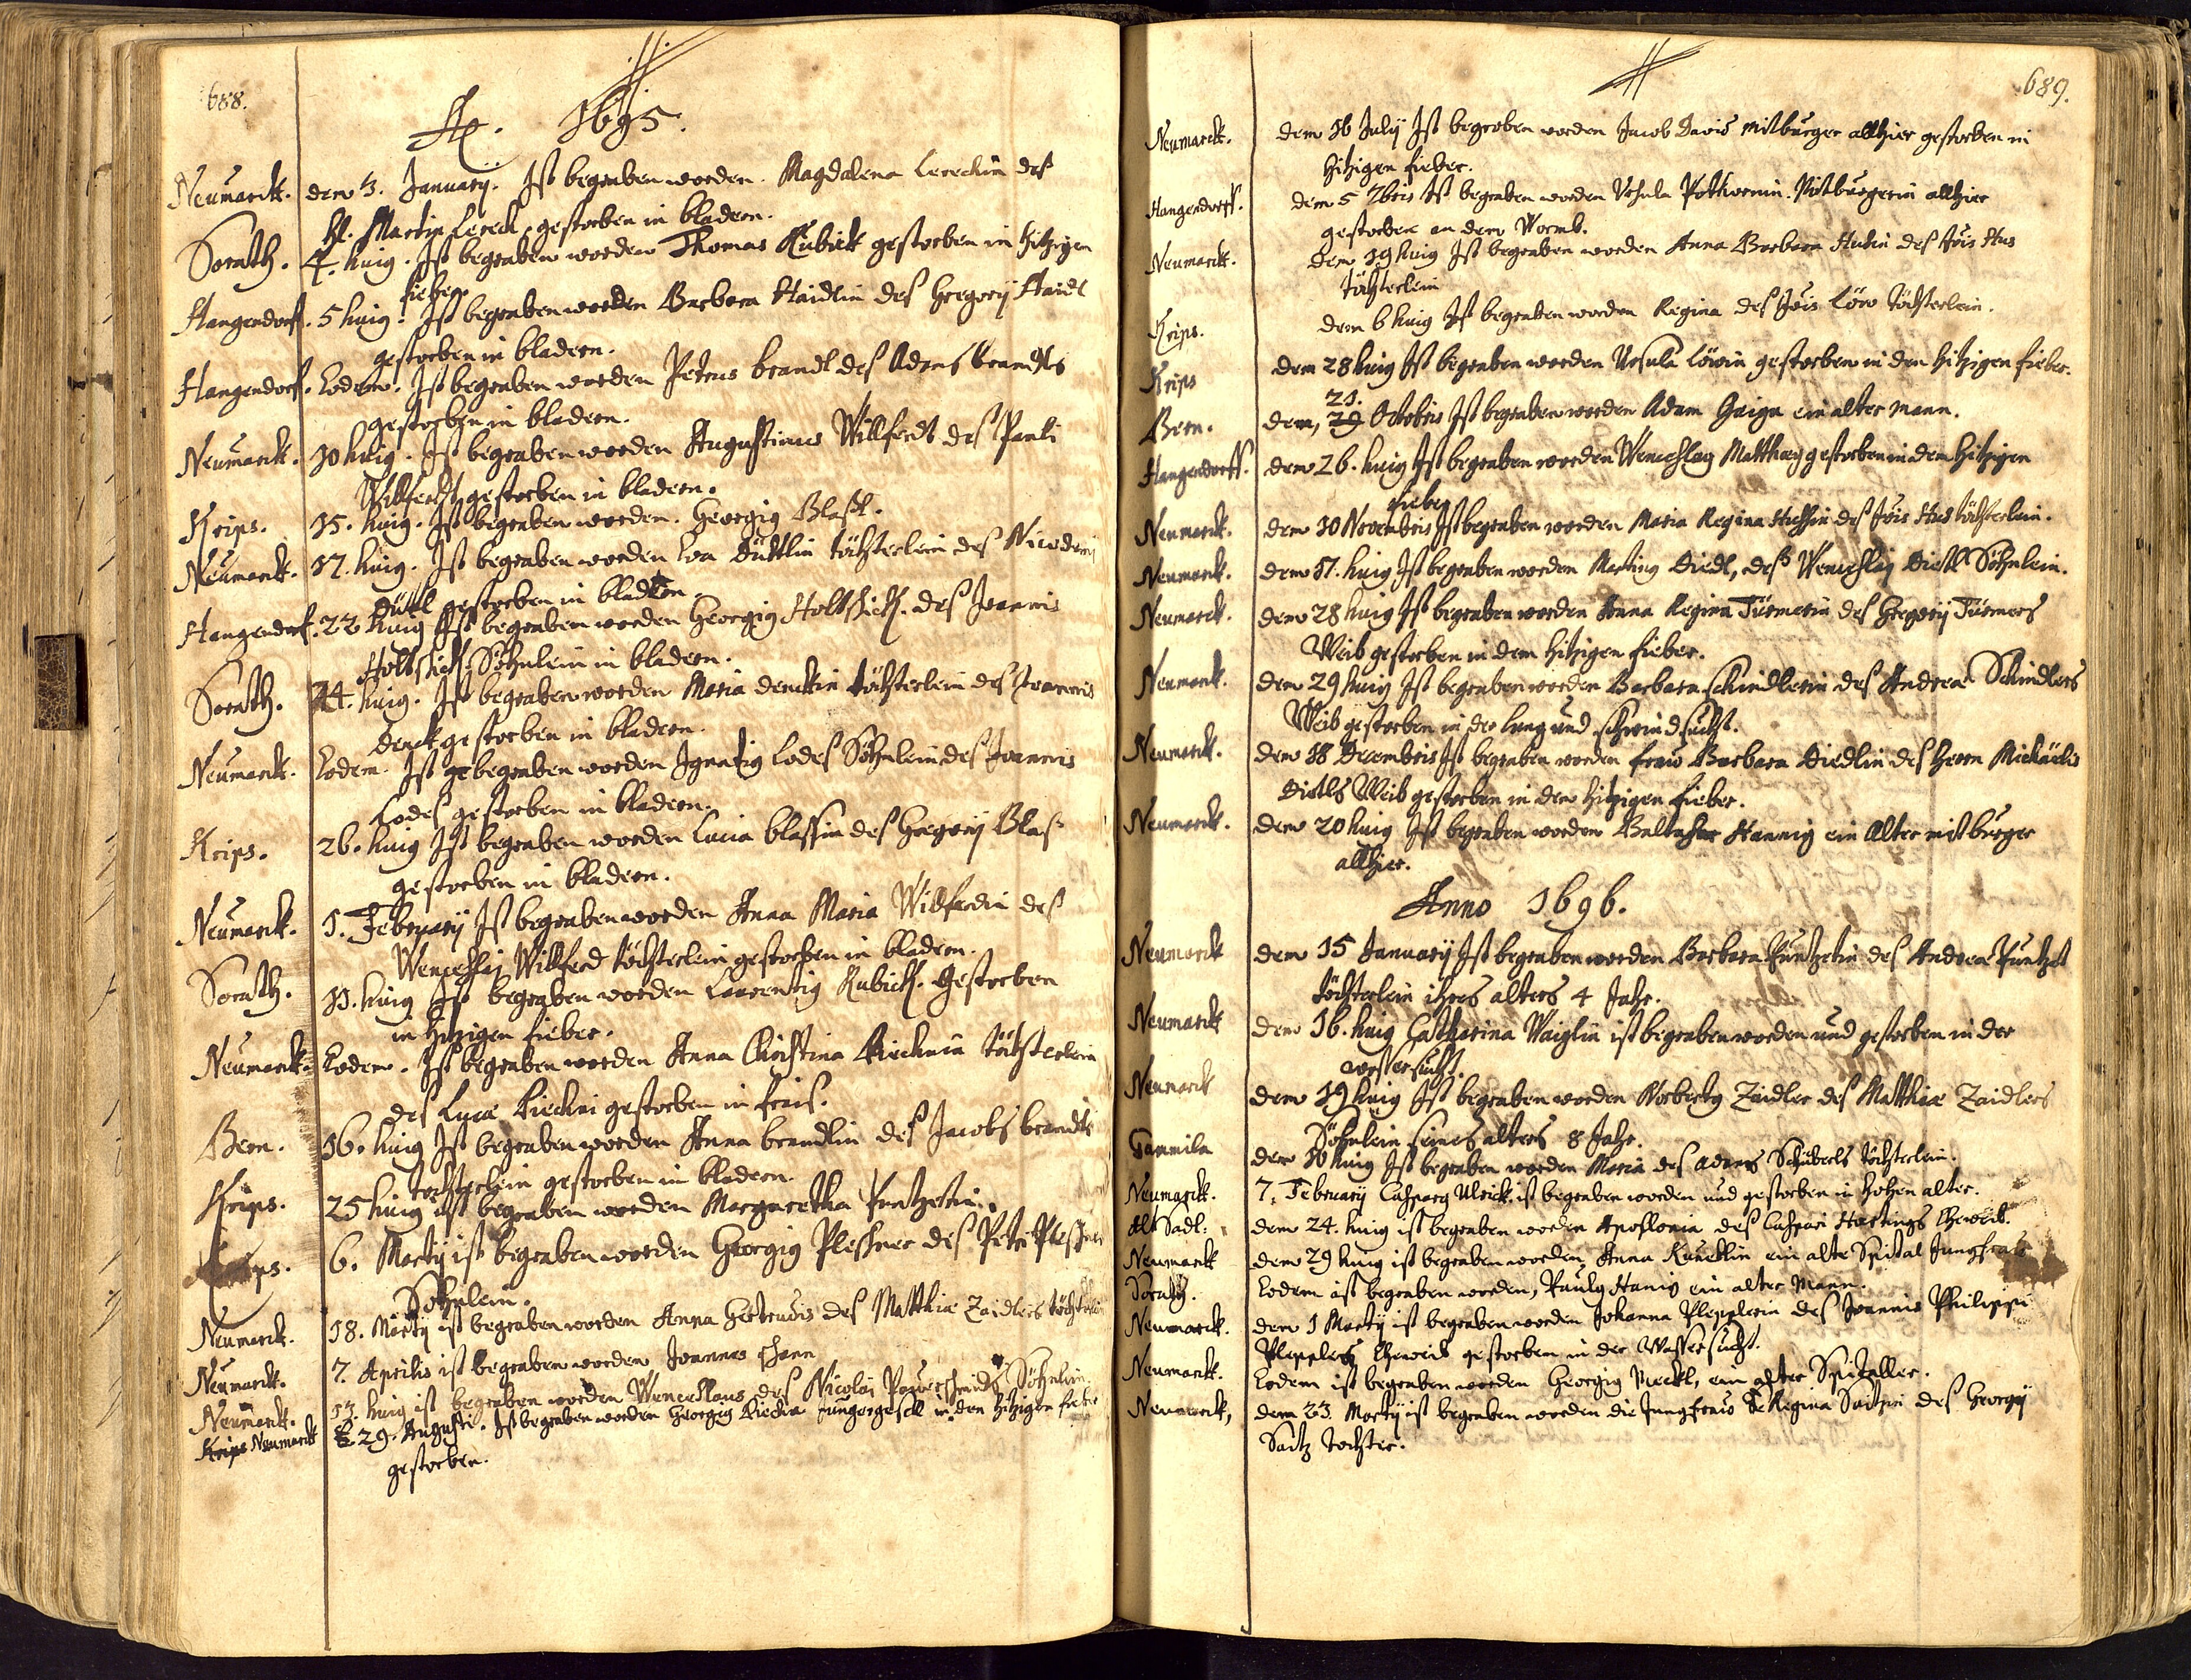 688.
Ao. 1695.
Neumarck. dem 3. January. Ist begraben worden. Magdalena Lereckin deß
H. Martin Lereck, gestorben in bladern.
Sorath. 4. huig. Ist begraben worden Thomas Kubick gestorben in hitzigen
fieber.
Hangendorf. 5 huig. Ist begraben worden Barbara Haidlin deß Gregorij Haidl
gestorben in bladern.
Hangendorf. Eodem. Ist begraben worden Petrus brandl deß Adams brandls
gestorben in bladern.
Neumarck. 10 huig. Ist begraben worden Augustinus Willferdt deß Pauli
Willferdt gestorben in bladern.
Krips. 15. huig. Ist begraben worden. Georgig Blaßl.
Neumarck. 17. huig. Ist begraben worden Eva Düttlin töchterlein deß Nicodemi
Düttl gestorben in bladern.
Hangendorf. 22 huig Ist begraben worden Georgig Holtschick. deß Joannis
Holtschick. Söhnlein in bladern.
Sorath. 24. huig. Ist begraben worden Maria denckin töchterlein deß Joannis
Denck gestorben in bladern.
Neumarck. Eodem. Ist begraben worden Ignatig Lodeß Söhnlein deß Joannis
Lodeß gestorben in bladern.
Krips. 26. huig Ist begraben worden Lucia blassin deß Gregorij Blaß
gestorben in bladern.
Neumarck. 1. February Ist begraben worden Anna Maria Willferdin deß
Wenceßlaj Willferd töchterlein gestorben in bladern.
Sorath. 11. huig Ist begraben worden Laurentig Kubick. Gestorben
in hitzigen fieber.
Neumarck. Eodem. Ist begraben worden Anna Christina Rieckin töchterlein
deß Lucæ gestorben in frais.
Bern. 16. huig Ist begraben worden Anna brandlin deß Jacobs brandls
tochterlein gestorben in bladern.
Krips. 25 huig ist begraben worden Margaretha
6. Martij ist begraben worden Georgig Pleßner deß Petri Pleßner
Söhnlein.
Neumarck. 18. Martij ist begraben worden Anna Gertrudis deß Matthiæ Zaidlers töchterlein
Neumarck. 7. Aprilis ist begraben worden Joannes
Neumarck. 13. huig ist begraben worden Wenceßlaus deß Nicolai Söhnlein.
Krips Neumarck 29. Augusti. Ist begraben worden Georgig in den hitzigen fieber
gestorben.
689.
Neumarck. dem 16 Julij Ist begraben worden Jacob David mitburger allhier gestorben in
hitzigen fieber.
Hangendorff. dem 5 7bris Ist begraben worden Mitburgerin allhier
gestorben an dem Wormb.
Neumarck. dem 19 huig Ist begraben worden Anna Barbara Husin deß Jois Hus
töchterlein
Krips. dem 6 huig Ist begraben worden Regina deß Jois Löw töchterlein.
Krips dem 28 huig Ist begraben worden Ursula Löwin gestorben in den hitzigen fieber.
21.
Bern. dem, 29 Octobris Ist begraben worden Adam ein alter mann.
Hangendorff. dem 26. huig Ist begraben worden Wenceßlag Matthæy gestorben in dem hitzigen
fieber
Neumarck. dem 10 Novembris Ist begraben worden Maria Regina Hussin deß Jois Hus töchterlein.
Neumarck. dem 17. huig Ist begraben worden Marting Diedl, deß Wenceßlaj Diedl Söhnlein.
Neumarck. dem 28 huig Ist begraben worden Anna Regina Türmerin deß Gregorij Türmers
Weib gestorben in dem hitzigen fieber.
Neumarck. dem 29 huig Ist begraben worden Barbara schindlerin deß Andreæ Schindlers
Weib gestorben in der lung und schwindsucht.
Neumarck. dem 18 Decembris Ist begraben worden fraw Barbara Diedlin deß Herrn Michaëlis
Diedls Weib gestorben in dem hitzigen fieber.
Neumarck. dem 20 huig Ist begraben worden Baltasar Hannig ein Alter mitburger
allhier.
Anno 1696.
Neumarck dem 15 Januarij Ist begraben worden Barbara Puntzetin deß Andreæ Puntzet
töchterlein ihres alters 4 Jahr.
Neumarck dem 16. huig Catharina Waiglin ist begraben worden und gestorben in der
wassersucht.
Neumarck dem 19 huig Ist begraben worden Norbertg Zaidler deß Matthiæ Zaidlers
Söhnlein seines alters 8 Jahr.
Gammila dem 30 huig Ist begraben worden Maria deß Adams Schüberls töchterlein.
Neumarck. 7. February Casparg Ulrick. ist begraben worden und gestorben in hohen alter.
Alt Sadl: dem 24. huig ist begraben worden Apollonia deß Caspari Hartings Eheweib.
Neumarck dem 29 huig ist begraben worden, Anna ein alte Spital Jungfraw
Sorath. Eodem ist begraben worden, Paulg Hanig ein alter Mann.
Neumarck. dem 1 Martij ist begraben worden Johanna Plepplerin deß Joannis Philippi
Plepplers Eheweib gestorben in der Wassersucht.
Neumarck. Eodem ist begraben worden Georgig Meckl, ein alter Spitaller.
Neumarck, dem 23. Martij ist begraben worden die Jungfraw Regina Saitzin deß Georgij
Saitz tochter.